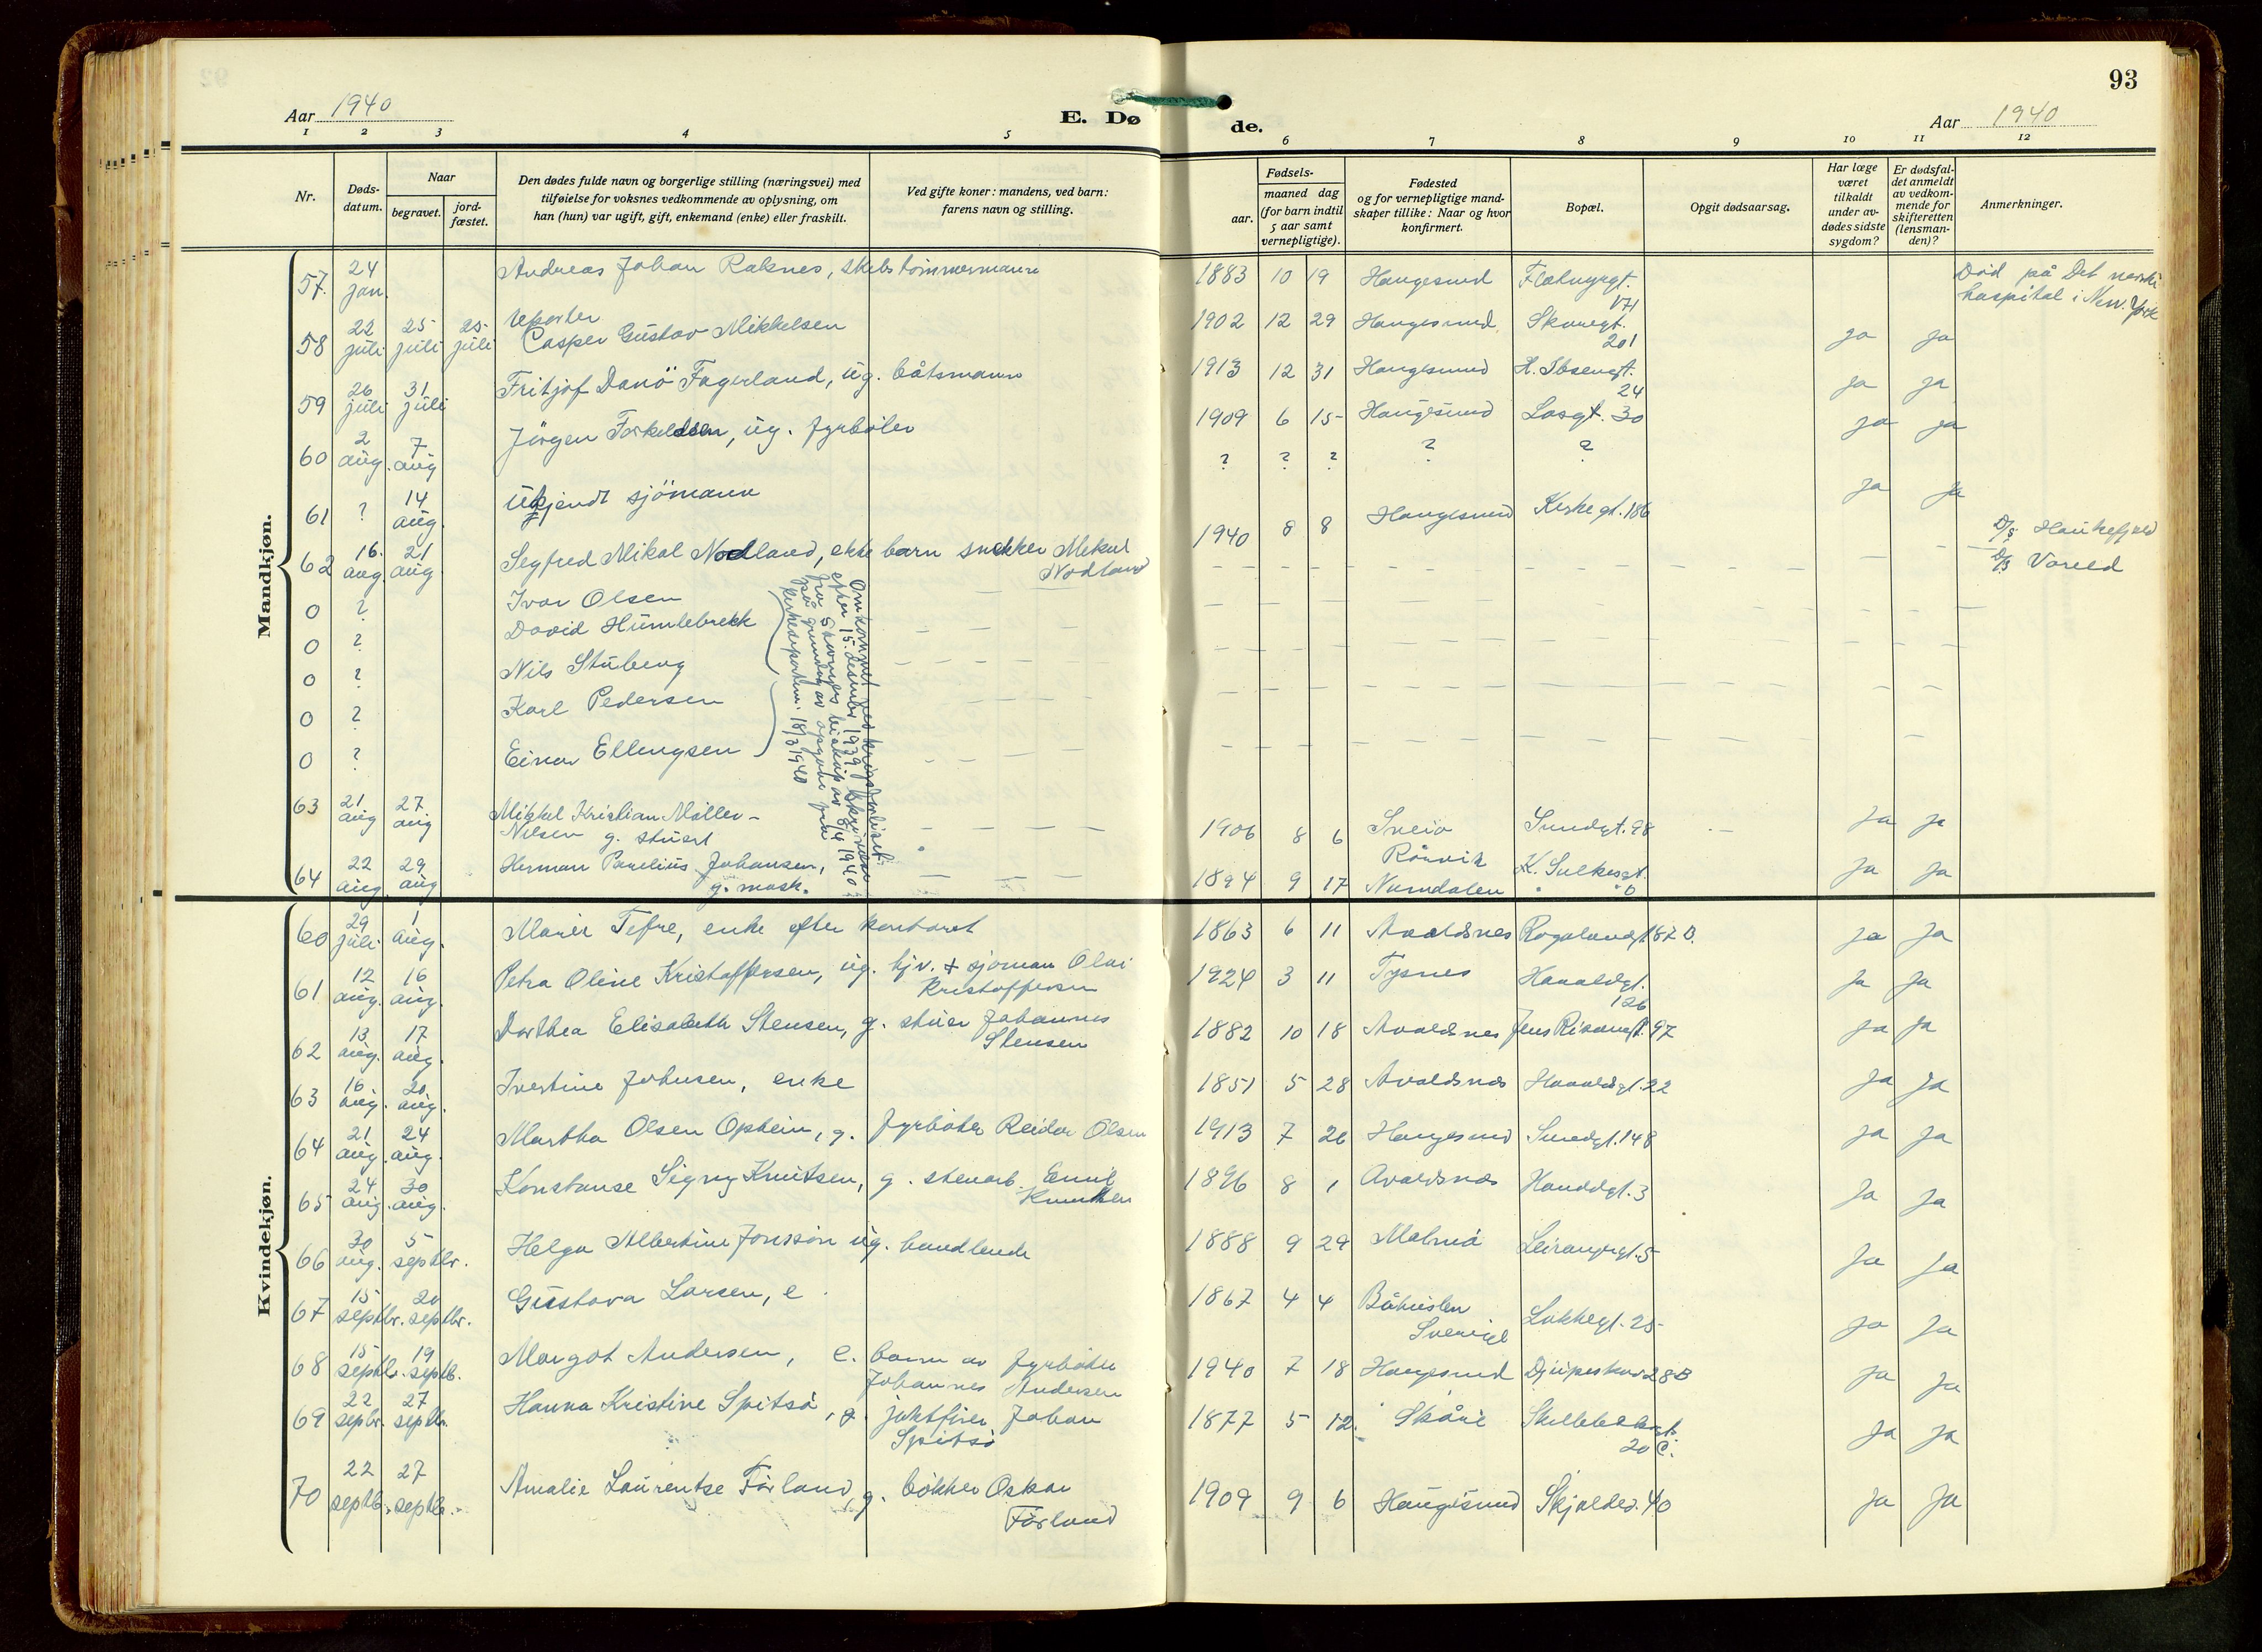 93
Aar 1940
E. Dø
de.
Aar 1940
1 2 3 4 5 6 7 8 9 10 11 12
Nr.
Døds-
datum.
Naar
begravet.
jord-
fæstet.
Den dødes fulde navn og borgerlige stilling (næringsvei) med
tilføielse for voksnes vedkommende av oplysning, om
han (hun) var ugift, gift, enkemand (enke) eller fraskilt.
Ved gifte koner: mandens, ved barn:
farens navn og stilling.
Fødsels-
aar.
maaned dag
(for barn indtil
5 aar samt
vernepligtige).
Fødested
og for vernepligtige mand-
skaper tillike: Naar og hvor
konfirmert.
Bopæl.
Opgit dødsaarsag.
Har læge
været
tilkaldt
under av-
dødes sidste
sygdom?
Er dødsfal-
det anmeldt
av vedkom-
mende for
skifteretten
(lensman-
den)?
Anmerkninger.
Mandkjøn.
57. 24 jan. Andreas Johan Raknes, skibstømmermann 1883 10 19 Haugesund 171 Død på Det norske
hospital i New. York
58 22 juli 25 juli 25 juli Casper Gustav Mikkelsen 1902 12 29 Haugesund 201 ja ja
59 26 juli 31 juli Fritjof Danö Fagerland, ug. båtsmann 1913 12 31 Haugesund H. Ibsengt. 24 ja ja
60 2 aug. 7 aug Jörgen Torkeldsen, ug. fyrböter 1909 6 15 Haugesund Losgt. 30 ja ja
61 ? 14 aug. Ukjendt sjömann ? ? ? ? ? ja ja
62 16. aug. 21 aug Segfred Mikal Nodland, ekte barn snekker Mikal
Nodland 1940 8 8 Haugesund Kirkegt. 186
D/S Haukefjeld
D/S Vareld
0 ? Ivar Olsen
0 ? David Humlebrekk
0 ? Nils Stuberg
0 ? Karl Pedersen
0 ? Einar Ellingsen
Omkommet ved krigsforliset
efter 15. desember 1939.
fra Stavanger biskop av 8/4 1940
på grunnlag av opgave fra
18/3 1940
63 21 aug 27 aug Mikkel Kristian Möller-
Nilsen g. stuert 1906 8 6 Sveio Sundgt. 98 ja ja
64 22 aug. 29 aug Herman Parelius Johansen,
g. mask. 1894 9 17 Rörvik
Numdalen ja ja
Kvindekjøn.
60 29 juli 1 aug. enke efter 1863 6 11 Avaldsnes ja ja
61 12 aug. 16 aug. Petra Oline Kristoffersen, ug. hjv. + sjöman Olai
Kristoffersen 1924 3 11 Tysnes Haraldgt.
126 ja ja
62 13 aug. 17 aug. Dorthea Elisabeth Stensen, g. stuer Johannes
Stensen 1882 10 18 Avaldsnes Jens Risøengt. 97 ja ja
63 16 aug. 20 aug. Ivertine Johnsen, enke 1851 5 28 Avaldsnes Haraldsgt. 22 ja ja
64 21 aug. 24 aug. Martha Olsen Opheim, g. fyrböter Reidar Olsen 1913 7 26 Haugesund Sundgt. 148 ja ja
65 24 aug. 30 aug. Konstanse Signy Knutsen, g. stenarb. Emil
Knutsen 1896 8 1 Avaldsnes Haraldgt. 3 ja ja
66 30 aug. 5 septbr. Helga Albertine Jonsson ug. handlende 1888 9 29 Malmö 5 ja ja
67 15 septbr. 20 septbr. Gustava Larsen, e. 1867 4 4 Båhuslen
Sverige Lokkegt. 25 ja ja
68 15 septbr. 19 septb. Margot Andersen, e. barn av fyrböter
Johannes Andersen 1940 7 18 Haugesund 28B ja ja
69 22 sepbr. 27 septbr. Hanna Kristine Spitsö, g. jaktfører Johan
Spitsö 1877 5 12. Skåre Skillebekkgt.
20 C. ja ja
70 22 septb. 27 septbr. Amalie Laurentse Förland, g. bökker Oskar
Förland 1909 9 6 Haugesund Skjoldev. 40 ja ja